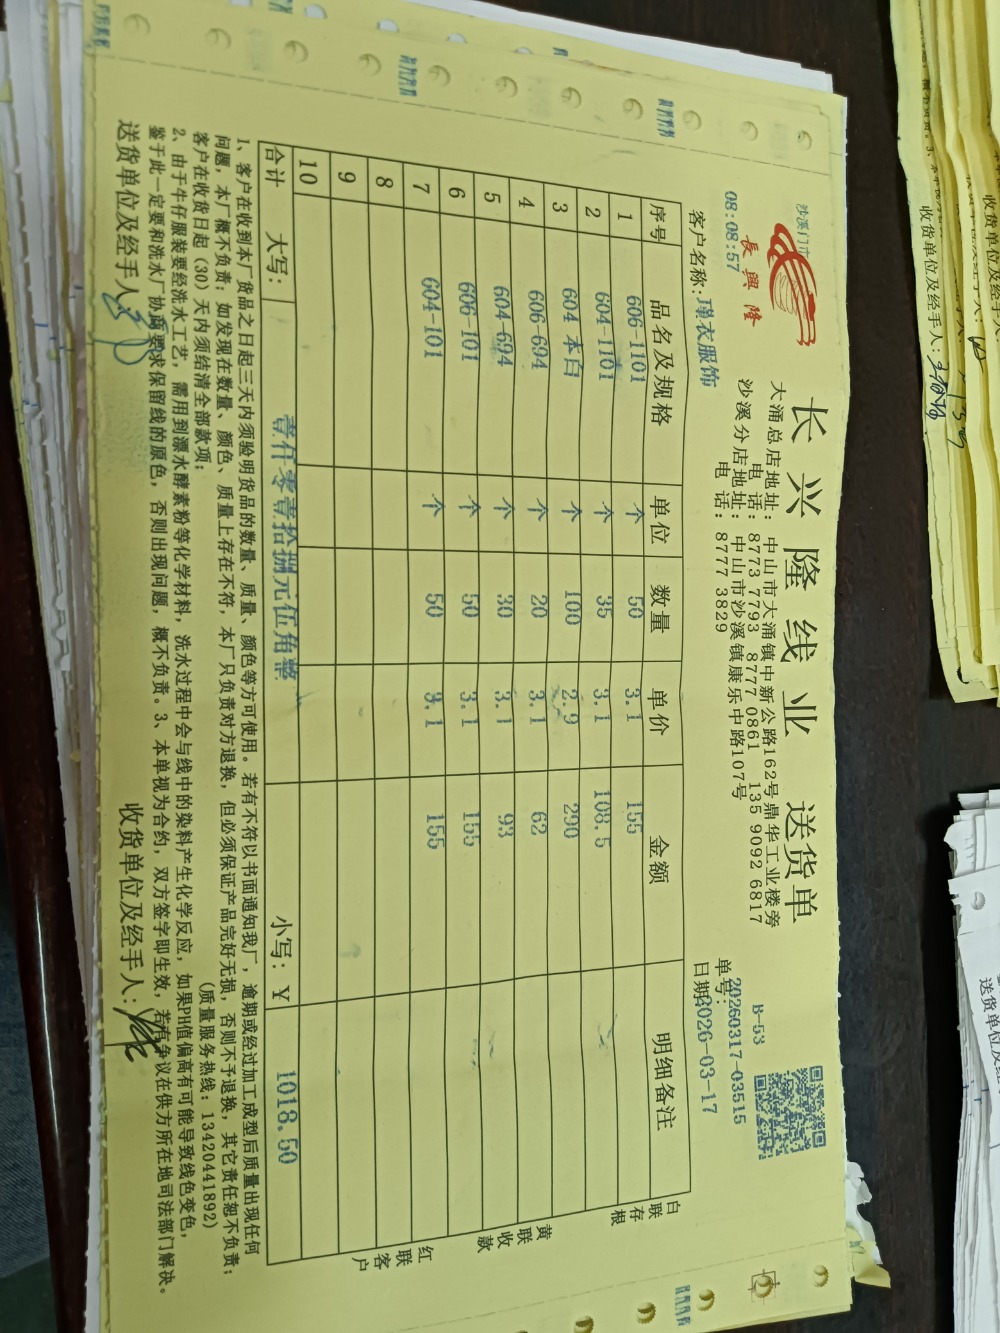 长兴隆线业 送货单
沙溪门市
長興隆
大涌总店地址：中山市大涌镇中新公路162号鼎华工业楼旁
电 话：8773 7793 8777 0861 135 9092 6817
沙溪分店地址：中山市沙溪镇康乐中路107号
电 话：8777 3829
B-53
08:08:57
单号：20260317-03515
客户名称：瑾衣服饰
日期：2026-03-17
序号 品名及规格 单位 数量 单价 金额 明细备注
1 606-1101 个 50 3.1 155
2 604-1101 个 35 3.1 108.5
3 604 本白 个 100 2.9 290
4 606-694 个 20 3.1 62
5 604-694 个 30 3.1 93
6 606-101 个 50 3.1 155
7 604-101 个 50 3.1 155
8
9
10
合计 大写： 壹仟零壹拾捌元伍角整 小写：Y 1018.50
白联存根
黄联收款
红联客户
1、客户在收到本厂货品之日起三天内须验明货品的数量、质量、颜色等方可使用。若有不符以书面通知我厂，逾期或经过加工成型后质量出现任何
问题，本厂概不负责；如发现在数量、颜色、质量上存在不符，本厂只负责对方退换，但必须保证产品完好无损，否则不予退换，其它责任恕不负责；
客户在收货日起（30）天内须结清全部款项； (质量服务热线：13420441892)
2、由于牛仔服装要经洗水工艺，需用到漂水酵素粉等化学材料，洗水过程中会与线中的染料产生化学反应，如果PH值偏高有可能导致线色变色，
鉴于此一定要和洗水厂协商要求保留线的原色，否则出现问题，概不负责。3、本单视为合约，双方签字即生效，若有争议在供方所在地司法部门解决。
送货单位及经手人：
收货单位及经手人：
收货单位及经手人：
收货单位及经手人：